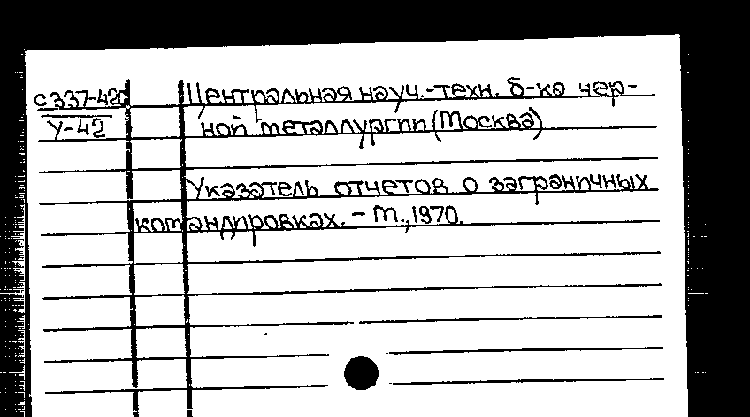 С337-420
У-42
Центральная науч.-техн. б-ка чер-
ной металлургии (Москва)
Указатель отчетов о заграничных
командировках. - М., 1970.